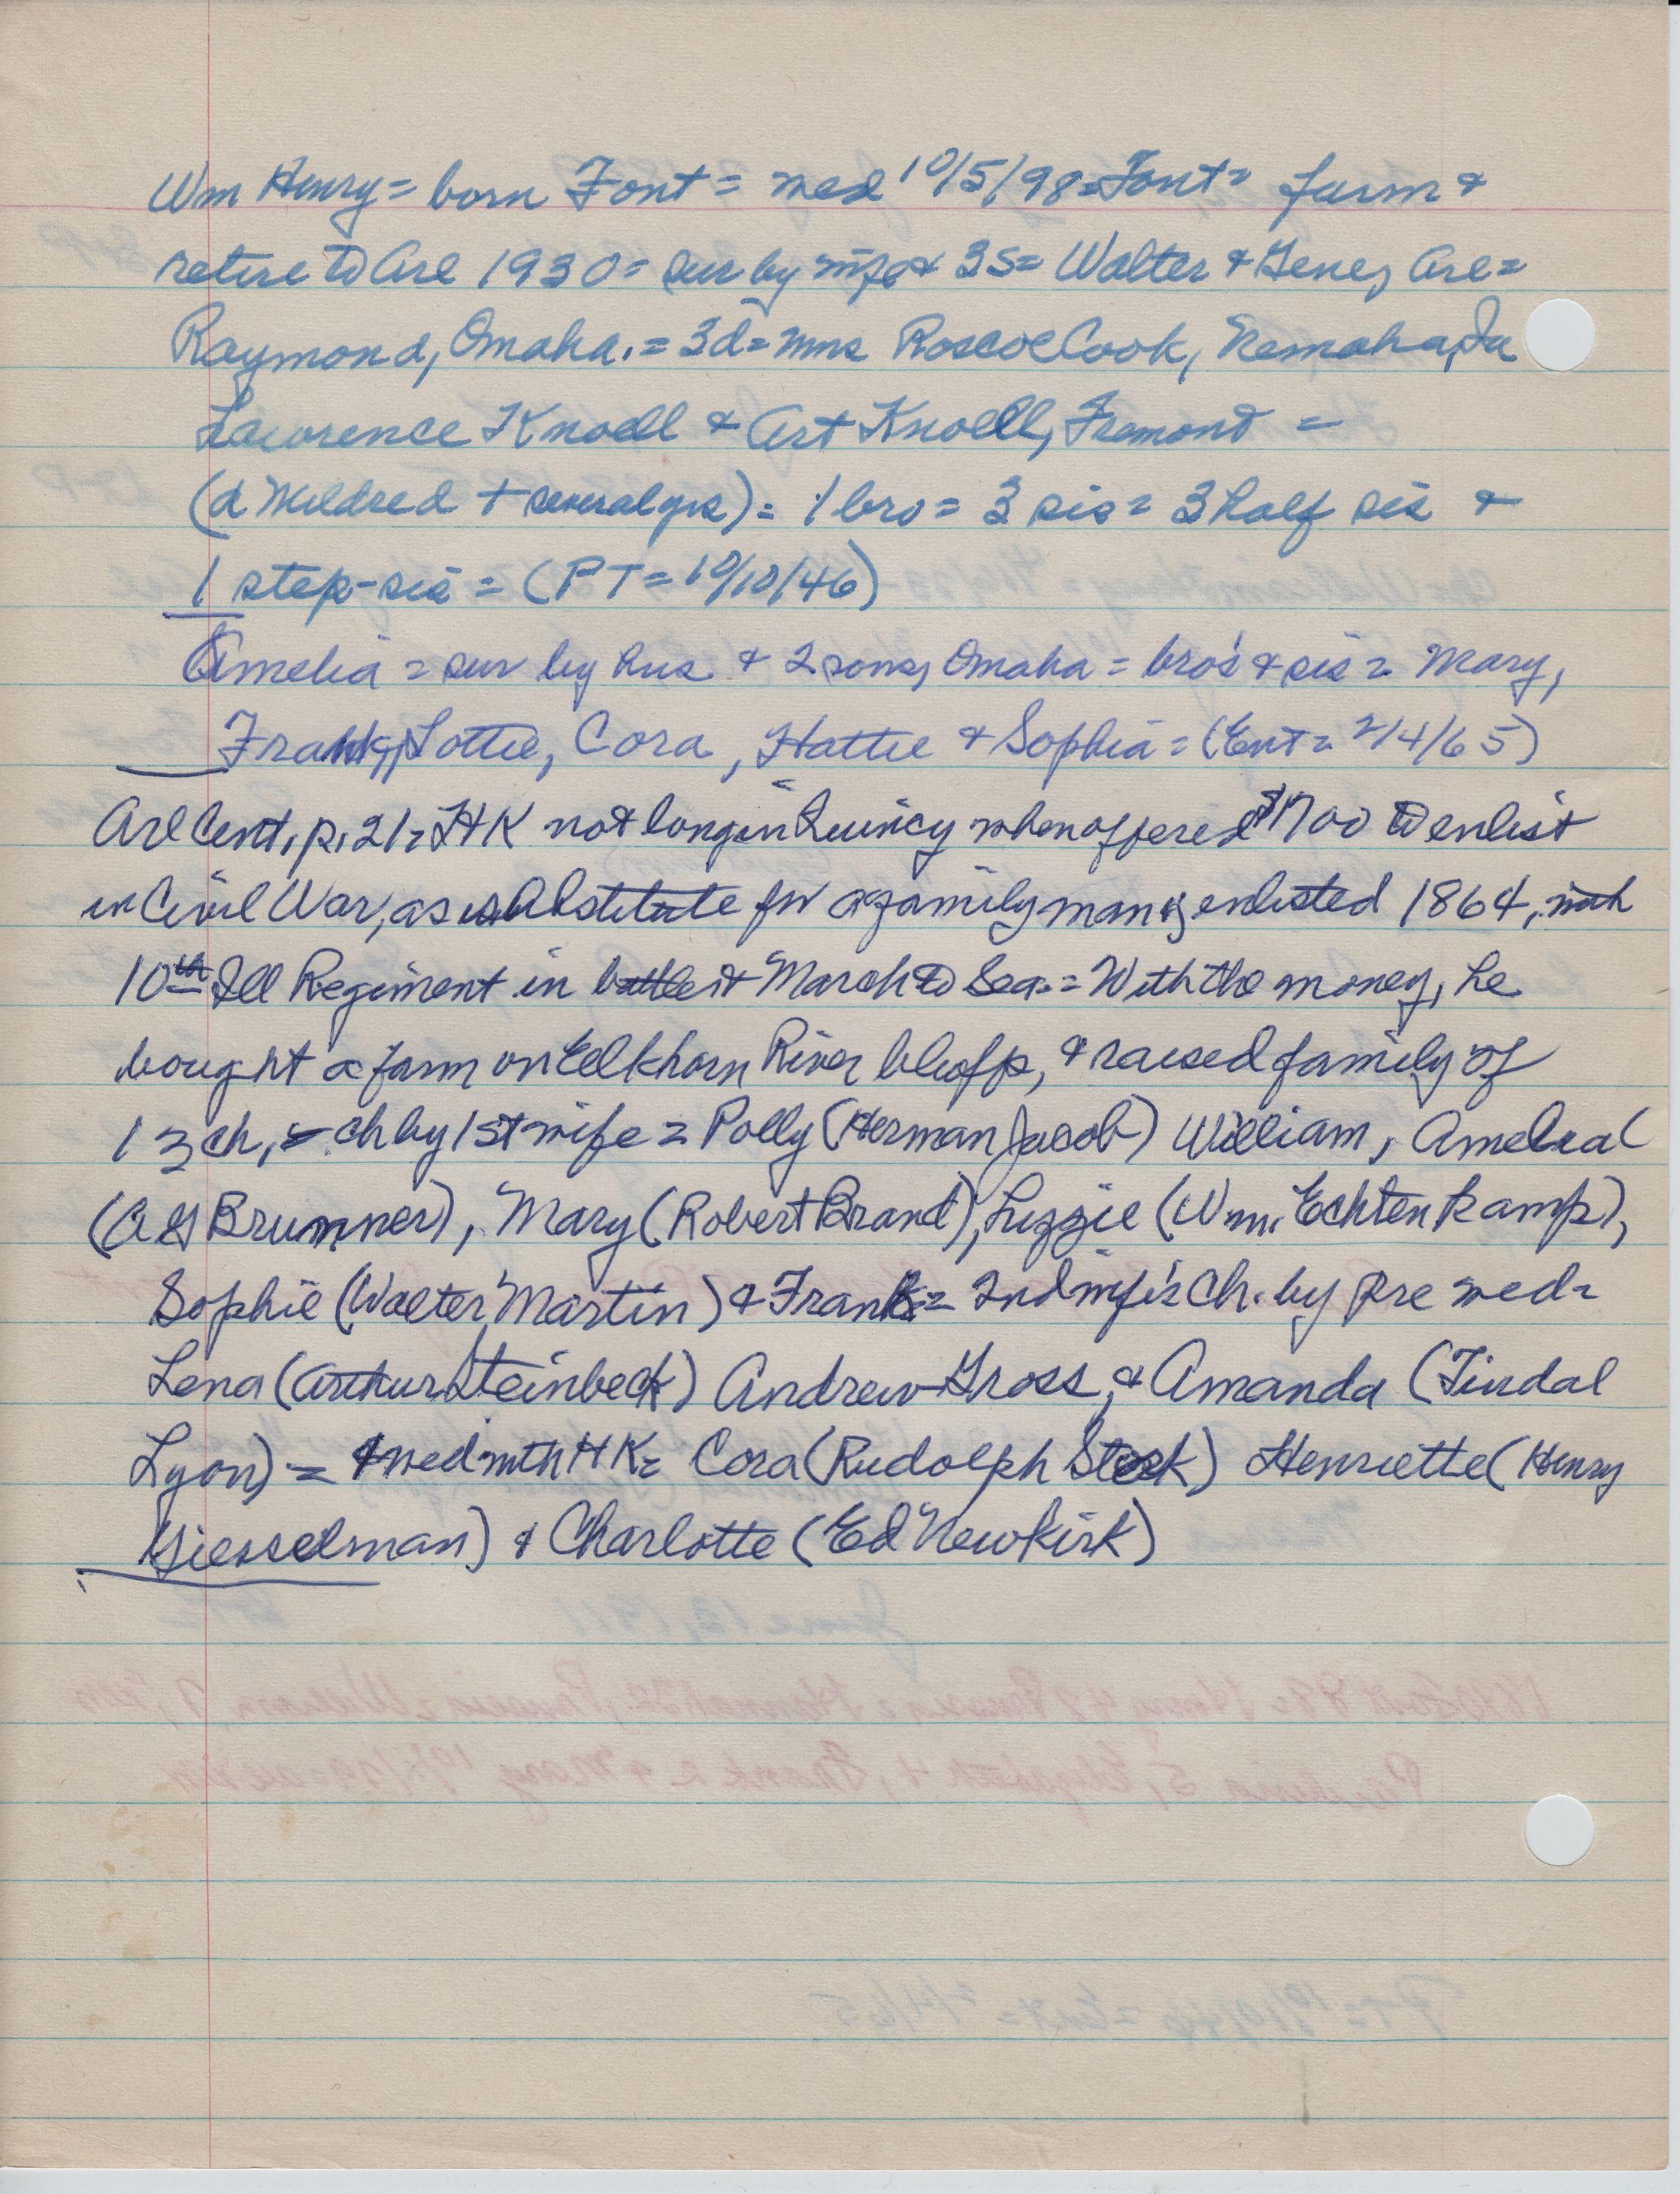 Wm Henry = born Font = wed 10/5/98 = Font = farm &
retire to Arl 1930 = sur by wife & 3s = Walter & Gene, Arl =
Raymond, Omaha. = 3d = Mms Roscoe Cook, Nemaha, Ia
Lawrence Knoell & Art Knoell, Fremont =
(d Mildred + several yrs) = 1 bro = 3 sis = 3 half sis &
1 step-sis = (PT = 10/10/46)
Amelia = sur by hus & 2 sons, Omaha = bro's & sis = Mary,
Frank, Lottie, Cora, Hattie & Sophia = (Ent = 2/4/65)
Arl Cent, p, 21 = HK not long in Quincy when offered $1700 to enlist
in Civil War, as substitute for a family man; enlisted 1864, with
10th Ill Regiment in battle & March to Sea. = With the money, he
bought a farm on Elkhorn River bluffs, & raised family of
13 ch, ch by 1st wife = Polly (Herman Jacob) William, Amelia
(A G Brunner), Mary (Robert Brand), Lizzie (Wm. Echtenkamp),
Sophie (Walter Martin) & Frank = 2nd wife's Ch. by pre wed =
Lena (Arthur Steinbeck) Andrew Gross, & Amanda (Tindal
Lyon) = & wed with HK = Cora (Rudolph Stork) Henriette (Henry
Giesselman) & Charlotte (Ed Newkirk)